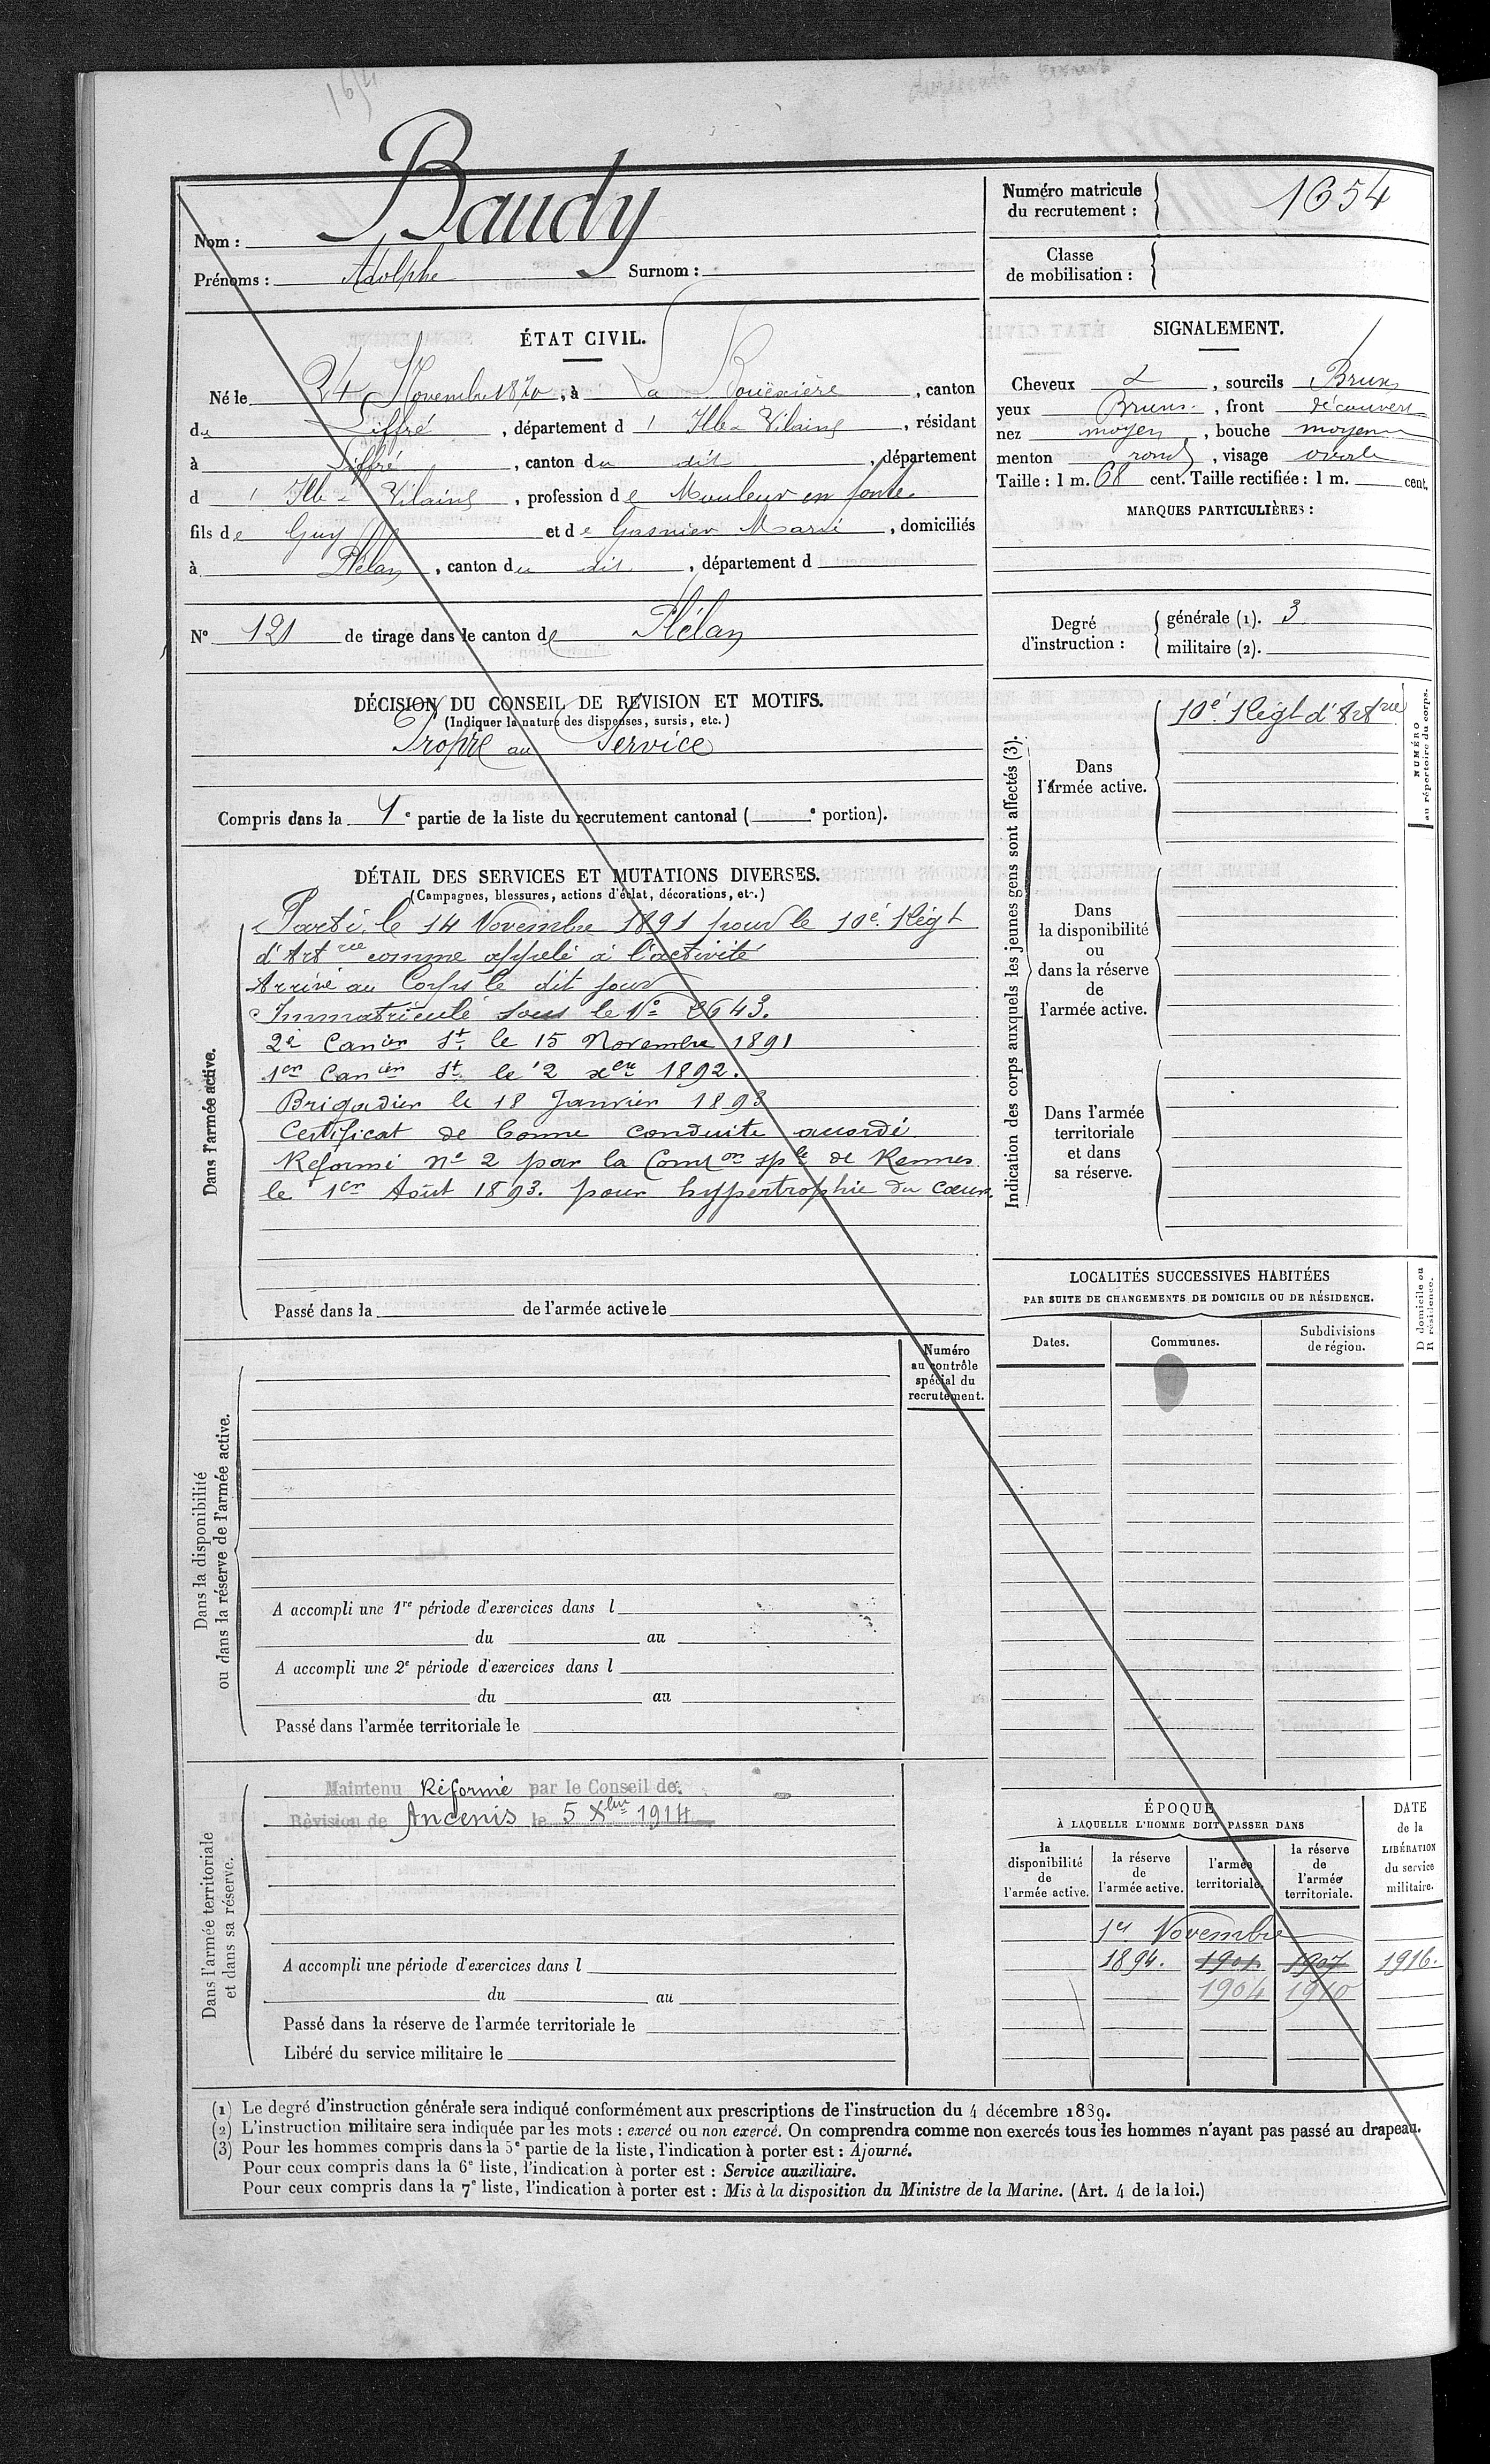 Nom : Baudy
Prénoms : Adolphe Surnom :
Numéro matricule du recrutement : 1654
Classe de mobilisation :
ÉTAT CIVIL.
Né le 24 Novembre 1870, à La Bouëxière, canton
du Liffré, département d l' Ille-Vilaine, résidant
à Liffré, canton du dit, département
d l' Ille-Vilaine, profession de Mouleur en fonte.
fils de Guy et de Gasnier Marie, domiciliés
à Plélan, canton du dit, département d
N° 121 de tirage dans le canton de Plélan
SIGNALEMENT.
Cheveux, sourcils Bruns
yeux Bruns, front découvert
nez moyen, bouche moyenne
menton rond, visage ovale
Taille : 1 m. 68 cent. Taille rectifiée : 1 m. cent.
MARQUES PARTICULIÈRES :
Degré d'instruction :
générale (1). 3
militaire (2).
DÉCISION DU CONSEIL DE RÉVISION ET MOTIFS.
(Indiquer la nature des dispenses, sursis, etc.)
Propre au Service
Compris dans la 1e partie de la liste du recrutement cantonal ( e portion).
DÉTAIL DES SERVICES ET MUTATIONS DIVERSES.
(Campagnes, blessures, actions d'éclat, décorations, etc.)
Dans l'armée active.
Parti le 14 Novembre 1891 pour le 10e Régt
d'Artrie comme appelé à l'activité
Arrivé au Corps le dit jour
Immatriculé sous le No 2643.
2e Canier St. le 15 Novembre 1891
1er Canier St. le 2 xbre 1892.
Brigadier le 18 Janvier 1893
Certificat de bonne conduite accordé.
Réformé no 2 par la Comon sple de Rennes
le 1er Août 1893. pour hypertrophie du cœur.
Passé dans la de l'armée active le
Indication des corps auxquels les jeunes gens sont affectés (3).
Dans l'armée active.
10e Régt d'Artrie
NUMÉRO au répertoire du corps.
Dans la disponibilité ou dans la réserve de l'armée active.
Dans l'armée territoriale et dans sa réserve.
LOCALITÉS SUCCESSIVES HABITÉES
PAR SUITE DE CHANGEMENTS DE DOMICILE OU DE RÉSIDENCE.
D domicile ou R résidence.
Dates. Communes. Subdivisions de région.
Numéro au contrôle spécial du recrutement.
Dans la disponibilité ou dans la réserve de l'armée active.
A accompli une 1re période d'exercices dans l
du au
A accompli une 2e période d'exercices dans l
du au
Passé dans l'armée territoriale le
Dans l'armée territoriale et dans sa réserve.
Maintenu Réformé par le Conseil de
Révision de Ancenis le 5 Xbre 1914
A accompli une période d'exercices dans l
du au
Passé dans la réserve de l'armée territoriale le
Libéré du service militaire le
ÉPOQUE
À LAQUELLE L'HOMME DOIT PASSER DANS
la disponibilité de l'armée active.
la réserve de l'armée active.
l'armée territoriale.
la réserve de l'armée territoriale.
DATE de la LIBÉRATION du service militaire.
1er Novembre
1894. 1901 1907 1916.
1904 1910
(1) Le degré d'instruction générale sera indiqué conformément aux prescriptions de l'instruction du 4 décembre 1889.
(2) L'instruction militaire sera indiquée par les mots : exercé ou non exercé. On comprendra comme non exercés tous les hommes n'ayant pas passé au drapeau.
(3) Pour les hommes compris dans la 5e partie de la liste, l'indication à porter est : Ajourné.
Pour ceux compris dans la 6e liste, l'indication à porter est : Service auxiliaire.
Pour ceux compris dans la 7e liste, l'indication à porter est : Mis à la disposition du Ministre de la Marine. (Art. 4 de la loi.)